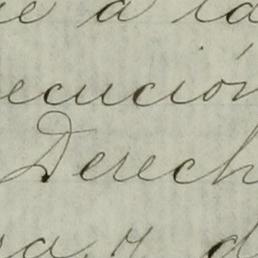 ue a la
ecución
Derech
sa, y d